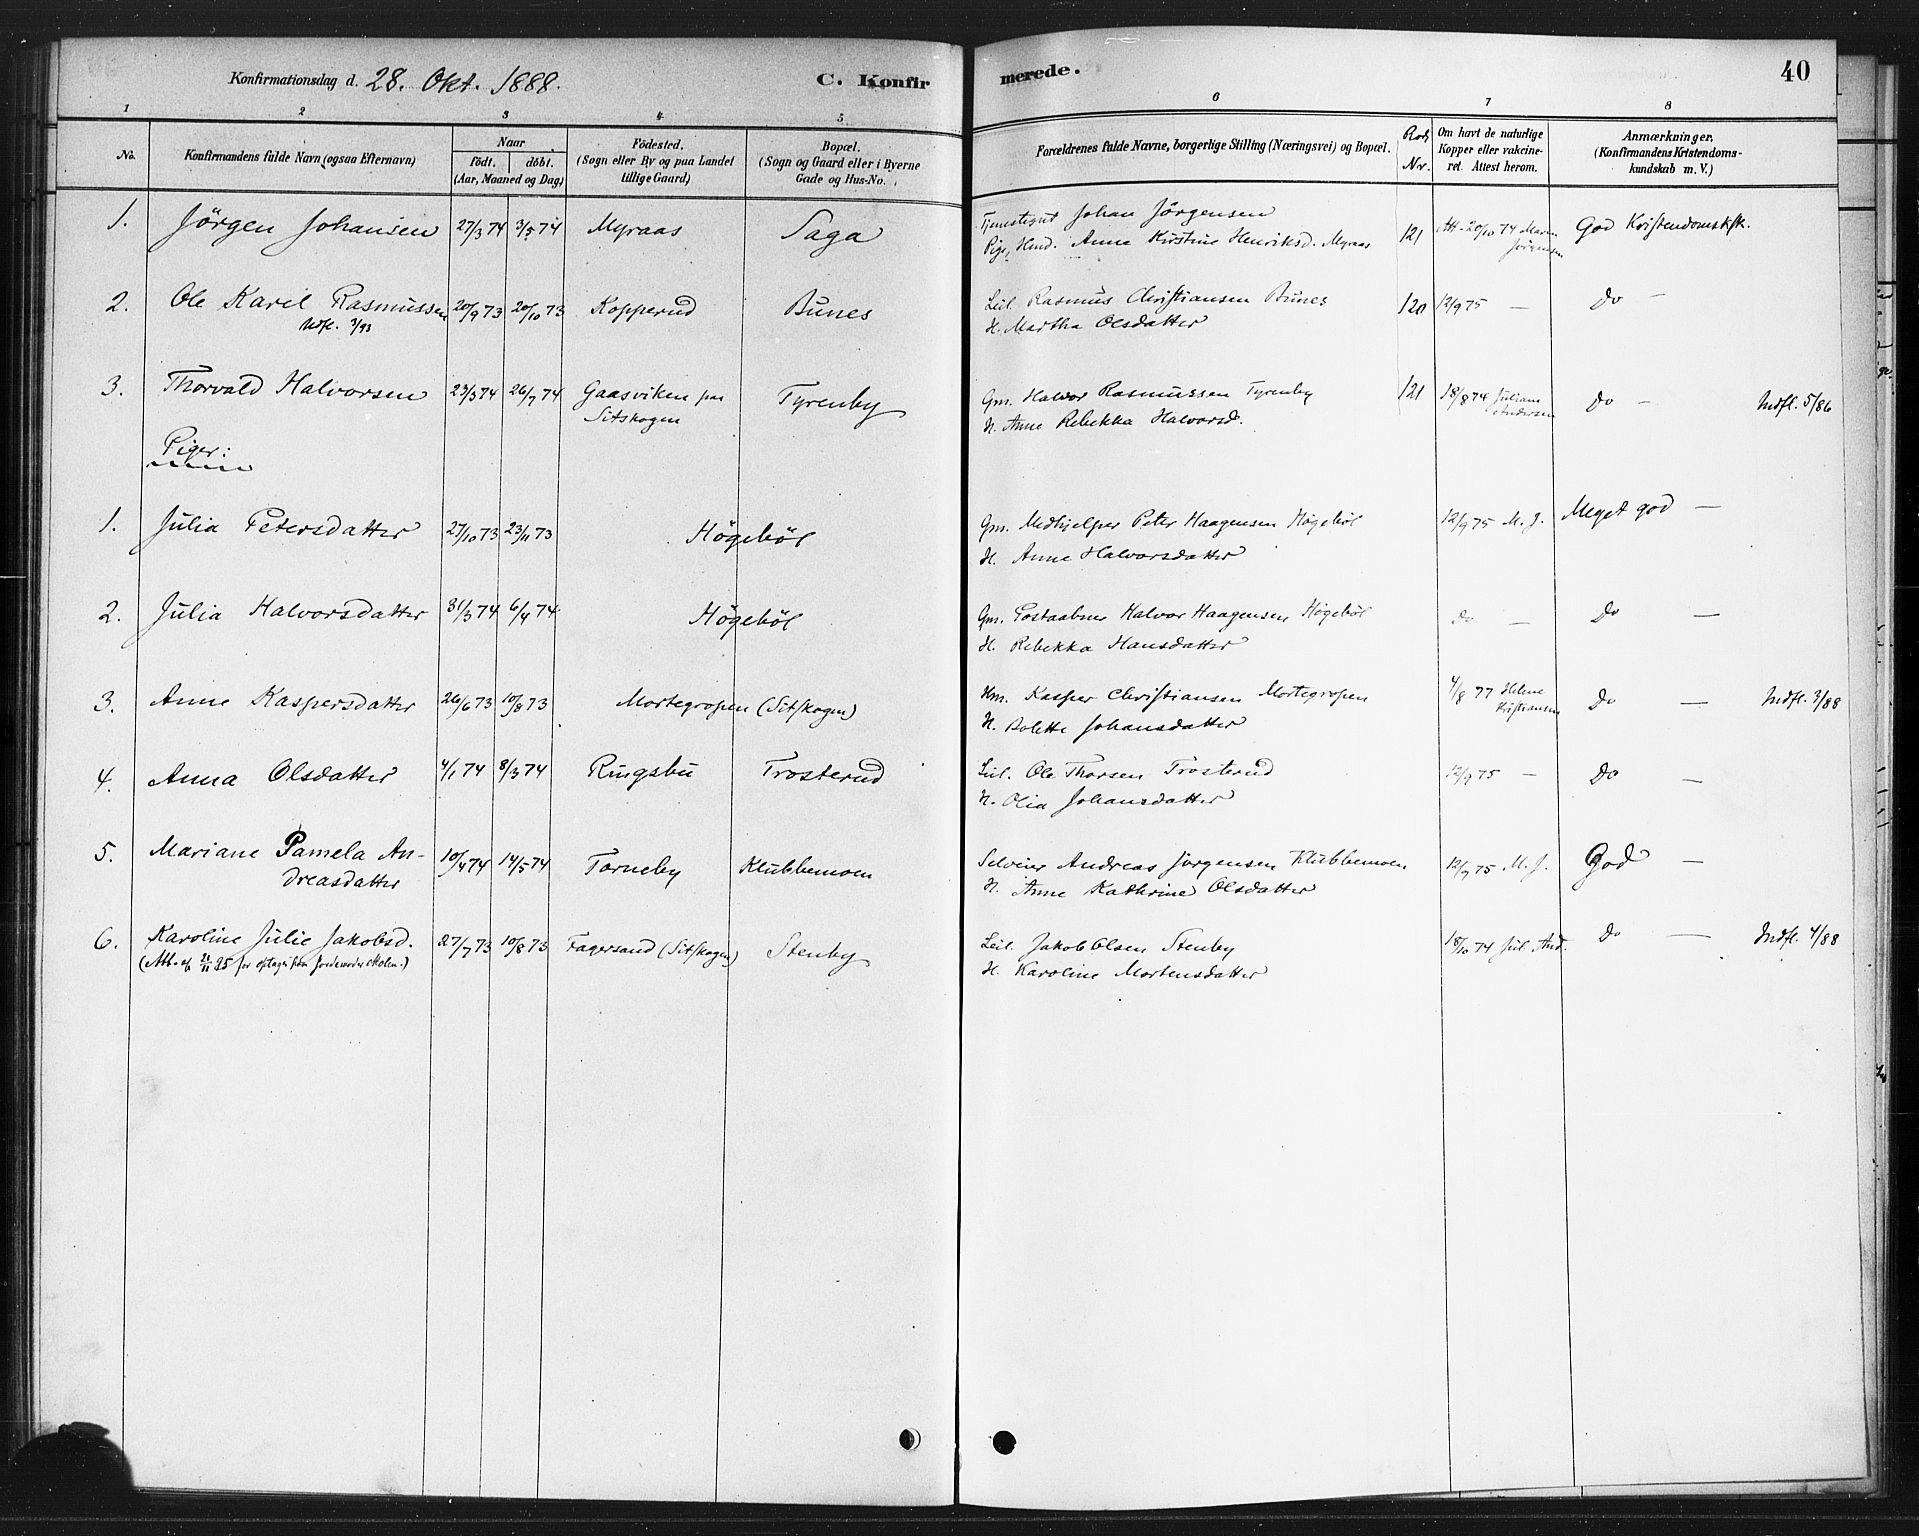 Konfirmationsdag d. 28. Okt. 1888. C. Konfirmerede. 40
1 2 3 4 5 6 7 8
No. Konfirmandens fulde Navn (ogsaa Efternavn) Naar födt. döbt. (Aar, Maaned og Dag) Födested. (Sogn eller By og paa Landet tillige Gaard) Bopæl. (Sogn og Gaard eller i Byerne Gade og Hus-No. Forældrenes fulde Navne, borgerlige Stilling (Næringsvei) og Bopæl. Rods Nr. Om havt de naturlige Kopper eller vakcineret. Attest herom. Anmærkninger. (Konfirmandens Kristendomskundskab m. V.)
1. Jörgen Johansen 27/3 74 3/5 74 Myraas Saga Tjenstegut Johan Jörgensen 121 Att. 20/10 74 Maren Jörgensen God Kristendomsksk.
Pige, Hmd. Anna Kirstine Henriksd. Myraas
2. Ole Karel Rasmussen 20/9 73 20/10 73 Kopperud Bunes Leil. Rasmus Christiansen Bunes 120 12/9 75 — Do —
Udfl. 3/93 H. Martha Olsdatter
3. Thorvald Halvorsen 23/3 74 26/7 74 Gaasviken paa Sitskogen Tyrenby Gm. Halvor Rasmussen Tyrenby 121 18/8 74 Juliane Andersen Do — Indfl. 5/86
H. Anne Rebekka Halvorsd.
Piger:
1. Julia Petersdatter 27/10 73 23/11 73 Högeböl Gm. Medhjelper Peter Haagensen Högeböl 12/9 75 M. J. Meget god —
H. Anne Halvorsdatter
2. Julia Halvorsdatter 31/3 74 6/4 74 Högeböl Gm. Postaabner Halvor Haagensen Högeböl Do — Do —
H. Rebekka Hansdatter
3. Anne Kaspersdatter 26/6 73 10/8 73 Mortegropen (Sitskogen) Hm. Kasper Christiansen Mortegropen 4/8 77 Helene Kristiansen Do — Indfl. 3/88
H. Bolette Johansdatter
4. Anna Olsdatter 4/1 74 8/3 74 Ringsbu Trosterud Leil. Ole Thorsen Trosterud 12/9 75 — Do —
H. Olia Johansdatter
5. Mariane Pamela Andreasdatter 10/4 74 14/5 74 Torneby Klubbemoen Selveier Andreas Jörgensen Klubbemoen 12/9 75 M. J. God —
H. Anne Kathrine Olsdatter
6. Karoline Julie Jakobsd. 27/7 73 10/8 73 Fagersand (Sitskogen) Stenby Leil. Jakob Olsen Stenby 18/10 74 Jul. And. Do — Indfl. 4/88
(Att. af 21/11 95 for optagelse Jordemoderskolen.) H. Karoline Mortensdatter